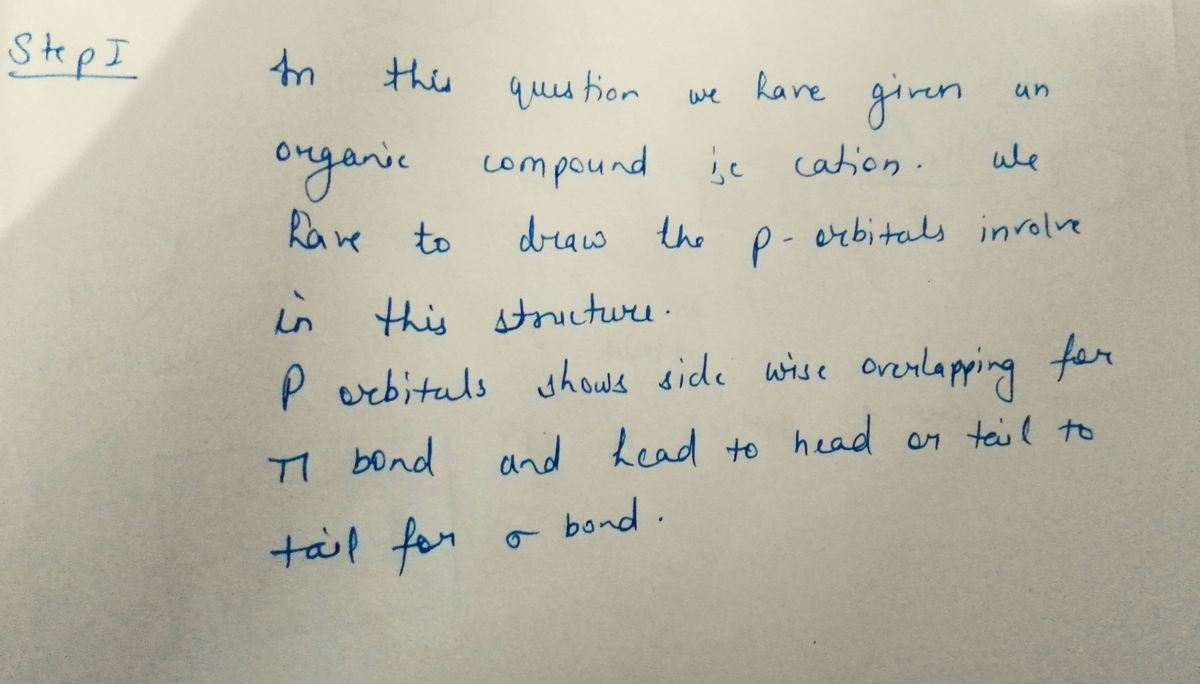 Step I
In this question we have given an
organic compound ie cation. We
have to draw the p-orbitals involve
in this structure.
P orbitals shows side wise overlapping for
π bond and head to head or tail to
tail for σ bond.